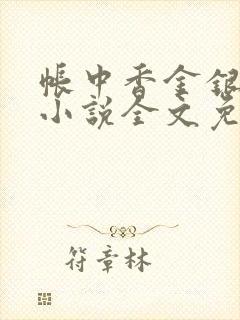 帳中香金銀
小說全文免
符章林